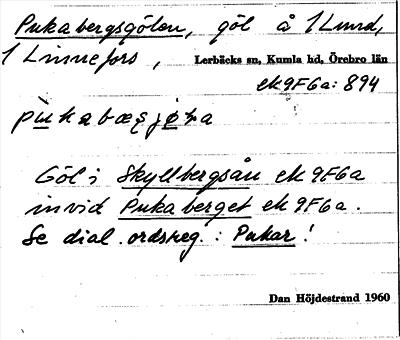 Pukabergsgölen, göl å 1 Lund,
1 Linnefors, Lerbäcks sn, Kumla hd, Örebro län
ek 9F6a: 894
Göl i Skyllbergsån ek 9F6a
invid Pukaberget ek 9F6a.
Se dial. ordreg.: Pukar!
Dan Höjdestrand 1960